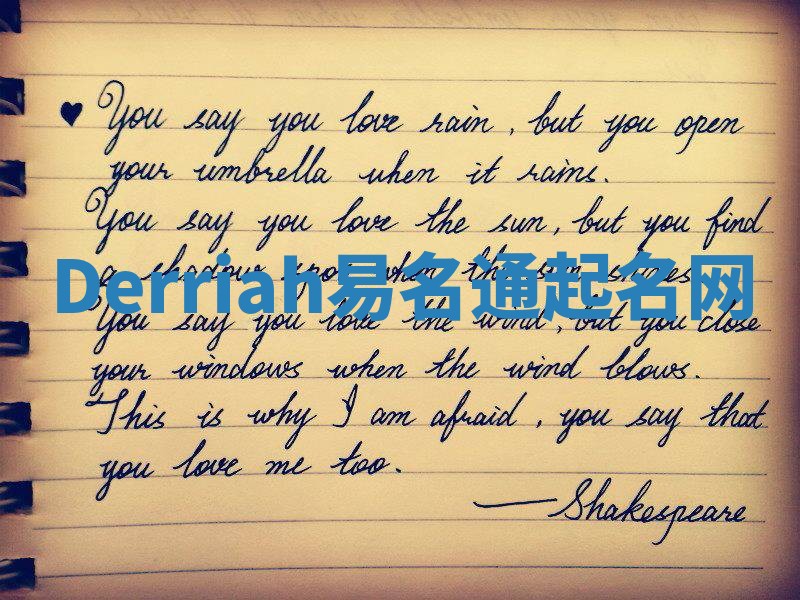 ♥ You say you love rain, but you open
your umbrella when it rains.
You say you love the sun, but you find
a shadow spot when the sun shines.
Derriah易名通起名网
You say you love the wind, but you close
your windows when the wind blows.
This is why I am afraid, you say that
you love me too.
— Shakespeare